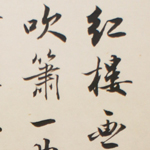 红楼画
吹箫一